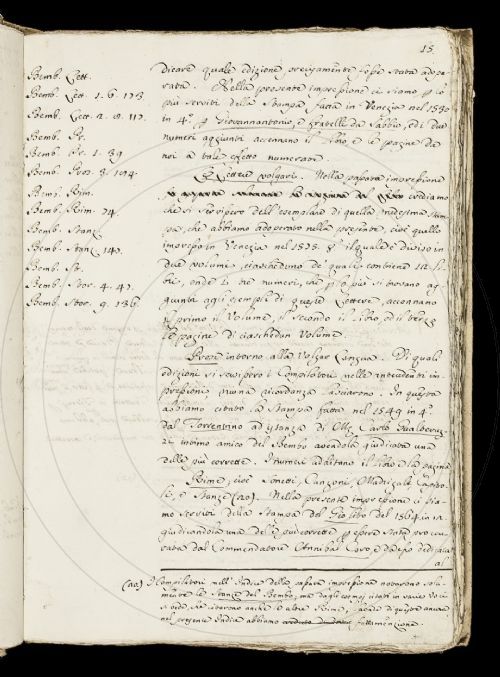 15
Bemb. Lett.
Bemb. Lett. 1. 6. 123
Bemb. Lett. 2. 8. 117.
Bemb. Pr.
Bemb. Pr. 1. 39
Bemb. Pros. 3. 194.
Bemb. Rim.
Bemb. Rim. 74
Bemb. Stanz
Bemb. Stanz. 147.
Bemb. St.
Bemb. Stor. 4. 47.
Bemb. Stor. 9. 136.
dicare quale edizione precisamente fosse stata adope-
rata. Nella presente impressione ci siamo p lo
più serviti della Stampa fatta in Venezia nel 1530
in 4.º p Giovannantonio, e fratelli da Sabbio, ed i due
numeri aggiunti accennano il libro, e le pagine da
noi a tale effetto numerate.
Lettere volgari. Nella passata impressione
crediamo
che si servissero dell'esemplare di quella medesima Stam
pa, che abbiamo adoperato nella presente, cioè quello
impresso in Venezia nel 1575. 8º il quale è diviso in
due volumi, ciascheduno de' quali contiene 12 Li-
bri, onde i tre numeri, che p lo più si trovano ag-
giunti agli esempli di queste Lettere, accennano
il primo il Volume, il secondo il libro, ed il terzo
le pagine di ciaschedun Volume.
Prose intorno alla Volgar Lingua. Di quali
edizioni si servissero i Compilatori nelle antecedenti im-
pressioni niuna ricordanza lasciarono. In questa
abbiamo citato la Stampa fatta nel 1549 in 4º
dal Torrentino ad istanza di M. Carlo Gualteruz-
zi intimo amico del Bembo avendola giudicata una
delle più corrette. I numeri additano il libro e la pagina
Rime, cioè Sonetti, Canzoni, Madrigali,
e Stanze (20). Nella presente impressione ci sia-
mo serviti della Stampa del Giolito del 1564 in 12
giudicandola una delle più corrette p essere stata procu-
rata dal Commendatore Annibal Caro, e da esso dedicata
al
(20) I Compilatori nell'Indice della passata impressione notarono sola-
mente le Stanze del Bembo; ma dagli esempj citati in varie Voci
si vede, che citarono anche le altre Rime, laonde di queste ancora
nel presente Indice abbiamo fatta menzione.